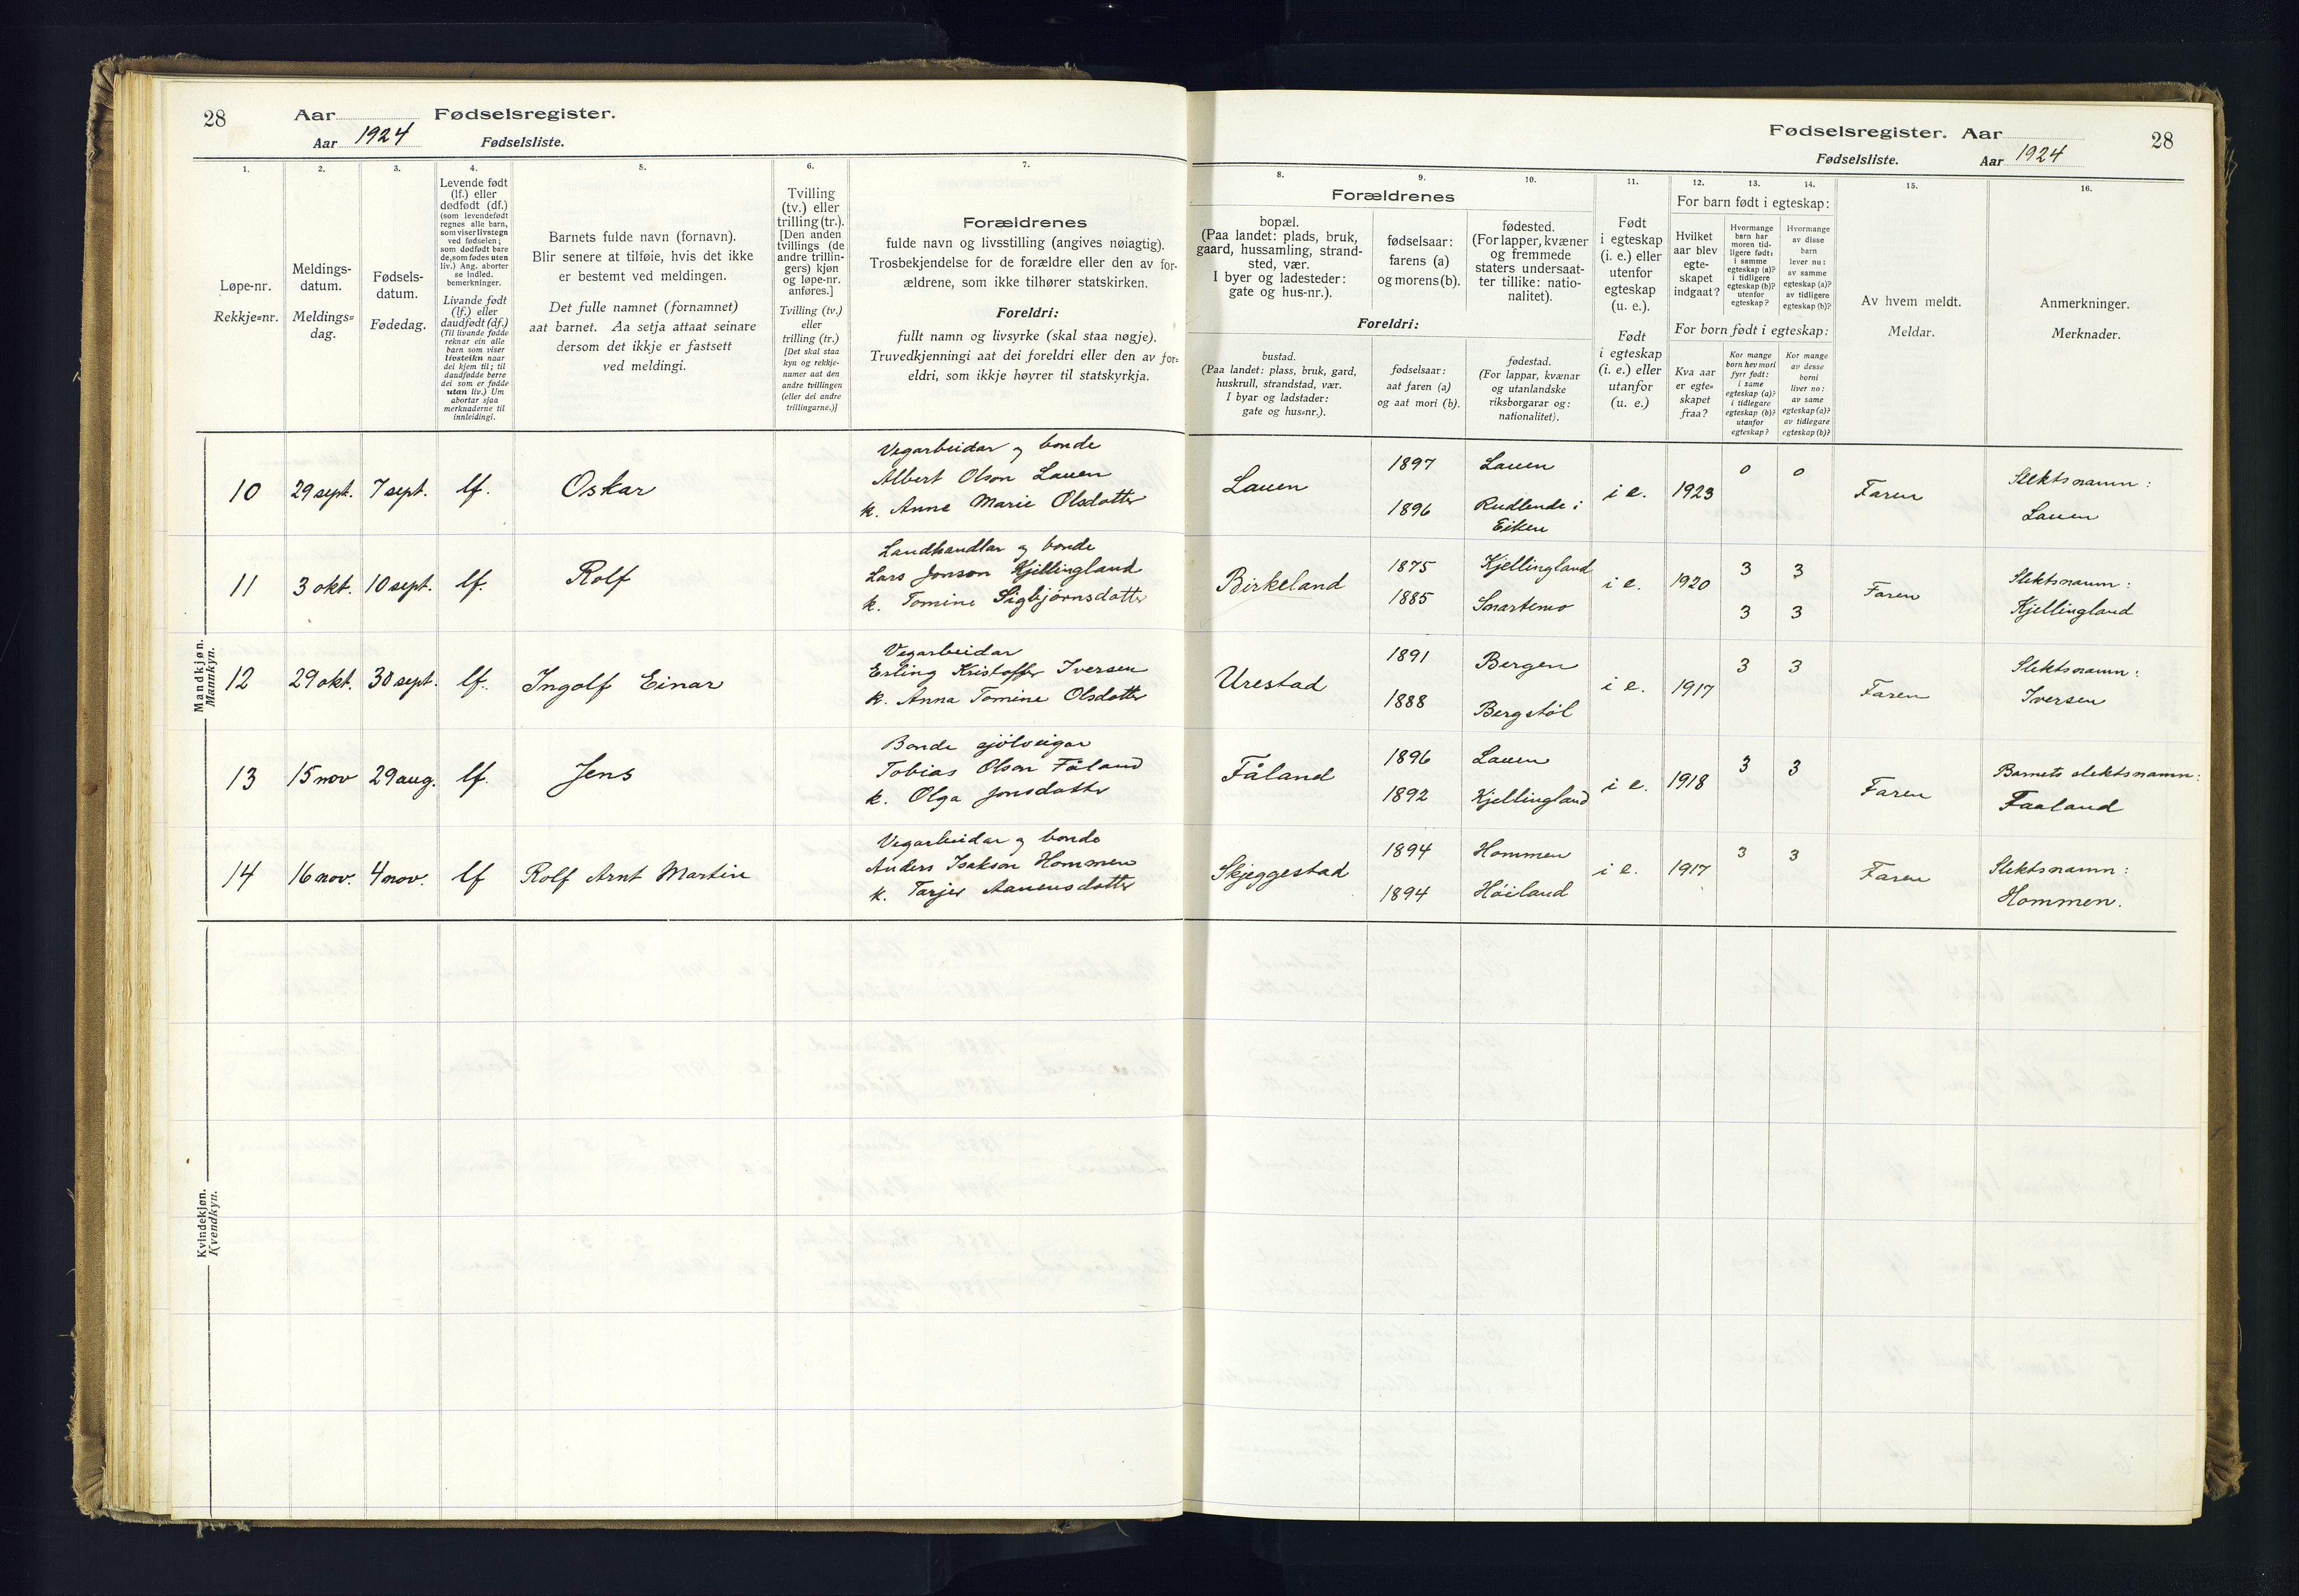 28
Aar
Fødselsregister.
Aar 1924
Fødselsliste.
1.
Løpe-nr.
Rekkje=nr.
2.
Meldings-
datum.
Meldings=
dag.
3.
Fødsels-
datum.
Fødedag.
4.
Levende født
(lf.) eller
dødfødt (df.)
(som levendefødt
regnes alle barn,
som viser livstegn
ved fødselen;
som dødfødt bare
de, som fødes uten
liv.) Ang. aborter
se indled.
bemerkninger.
Livande født
(lf.) eller
daudfødt (df.)
(Til livande fødde
reknar ein alle
barn som viser
livsteikn naar
dei kjem til; til
daudfødde berre
dei som er fødde
utan liv.) Um
abortar sjaa
merknaderne til
innleidingi.
5.
Barnets fulde navn (fornavn).
Blir senere at tilføie, hvis det ikke
er bestemt ved meldingen.
Det fulle namnet (fornamnet)
aat barnet. Aa setja attaat seinare
dersom det ikkje er fastsett
ved meldingi.
6.
Tvilling
(tv.) eller
trilling (tr.).
[Den anden
tvillings (de
andre trillin-
gers) kjøn
og løpe-nr.
anføres.]
Tvilling (tv.)
eller
trilling (tr.)
[Det skal staa
kyn og rekkje-
numer aat den
andre tvillingen
(eller dei andre
trillingarne.)]
7.
Forældrenes
fulde navn og livsstilling (angives nøiagtig).
Trosbekjendelse for de forældre eller den av for-
ældrene, som ikke tilhører statskirken.
Foreldri:
fullt namn og livsyrke (skal staa nøgje).
Truvedkjenningi aat dei foreldri eller den av for=
eldri, som ikkje høyrer til statskyrkja.
Fødselsregister. Aar
28
Fødselsliste.
Aar 1924
Forældrenes
8.
bopæl.
(Paa landet: plads, bruk,
gaard, hussamling, strand-
sted, vær.
I byer og ladesteder:
gate og hus-nr.).
9.
fødselsaar:
farens (a)
og morens (b).
10.
fødested.
(For lapper, kvæner
og fremmede
staters undersaat-
ter tillike: natio-
nalitet).
Foreldri:
bustad.
(Paa landet: plass, bruk, gard,
huskrull, strandstad, vær.
I byar og ladstader:
gate og hus=nr.).
fødselsaar:
aat faren (a)
og aat mori (b).
fødestad.
(For lappar, kvænar
og utanlandske
riksborgarar og:
nationalitet).
11.
Født
i egteskap
(i. e.) eller
utenfor
egteskap
(u. e.).
Født
i egteskap
(i. e.) eller
utanfor
(u. e.)
12.
13.
14.
For barn født i egteskap:
Hvilket
aar blev
egte-
skapet
indgaat?
Hvormange
barn har
moren tid-
ligere født:
i samme
egteskap (a)?
i tidligere
egteskap (b)?
utenfor
egteskap?
Hvormange
av disse
barn
lever nu:
av samme
egteskap (a)?
av tidligere
egteskap (b)?
For born født i egteskap:
Kva aar
er egte=
skapet
fraa?
Kor mange
born hev mori
fyrr født:
i same
egteskap (a)?
i tidlegare
egteskap (b)?
utanfor
egteskap?
Kor mange
av desse
borni
liver no:
av same
egteskap (a)?
av tidlegare
egteskap (b)?
15.
Av hvem meldt.
Meldar.
16.
Anmerkninger.
Merknader.
Mandkjøn.
Mannkyn.
10 29 sept. 7 sept. lf. Oskar
Vegarbeidar og bonde
Albert Olson Lauen
k. Anne Marie Olsdotter
Lauen
1897 Lauen
1896 Rudlende i
Eiken
i e. 1923 0 0 Faren
Slektsnamn:
Lauen
11 3 okt. 10 sept. lf. Rolf
Landhandlar og bonde
Lars Jonson Kjellingland
k. Tomine Sigbjørnsdotter
Birkeland
1875 Kjellingland
1885 Snartemo
i e. 1920 3 3
3 3
Faren
Slektsnamn:
Kjellingland
12 29 okt. 30 sept. lf. Ingolf Einar
Vegarbeidar
Erling Kristoffer Iversen
k. Anna Tomine Olsdotter
Urestad
1891 Bergen
1888 Bergstøl
i e. 1917 3 3 Faren
Slektsnamn:
Iversen
13 15 nov 29 aug. lf. Jens
Bonde sjølveigar
Tobias Olson Fåland
k. Olga Jonsdotter
Fåland
1896 Lauen
1892 Kjellingland
i e. 1918 3 3 Faren
Barnets slektsnamn:
Faaland
14 16 nov. 4 nov. lf Rolf Arnt Martin
Vegarbeidar og bonde
Anders Isakson Hommen
k. Tarjer Aanensdotter
Skjeggestad
1894 Hommen
1894 Høiland
i e. 1917 3 3 Faren
Slektsnamn:
Hommen.
Kvindekjøn.
Kvendkyn.